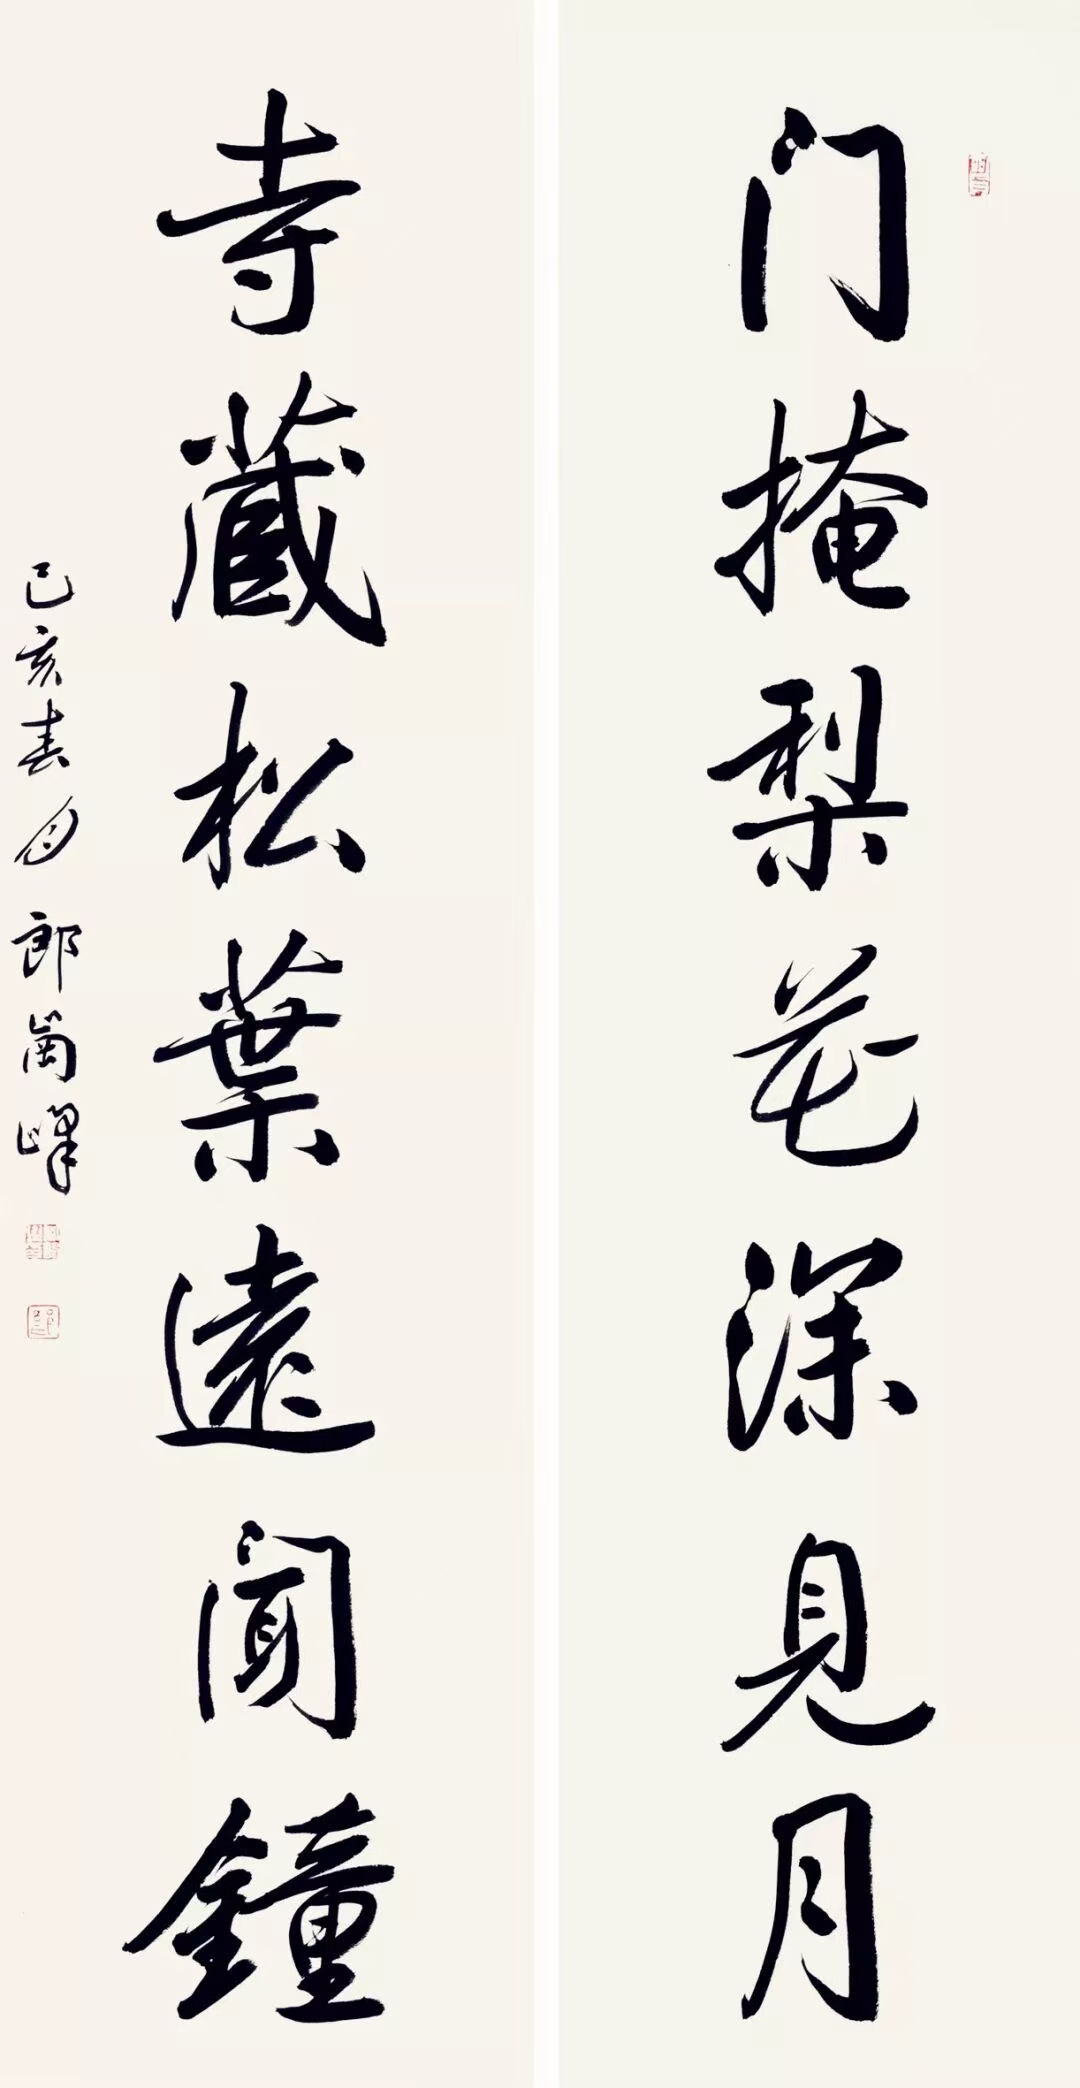 门掩梨花深见月
寺藏松葉遠闻鐘
己亥春月郎岗峰